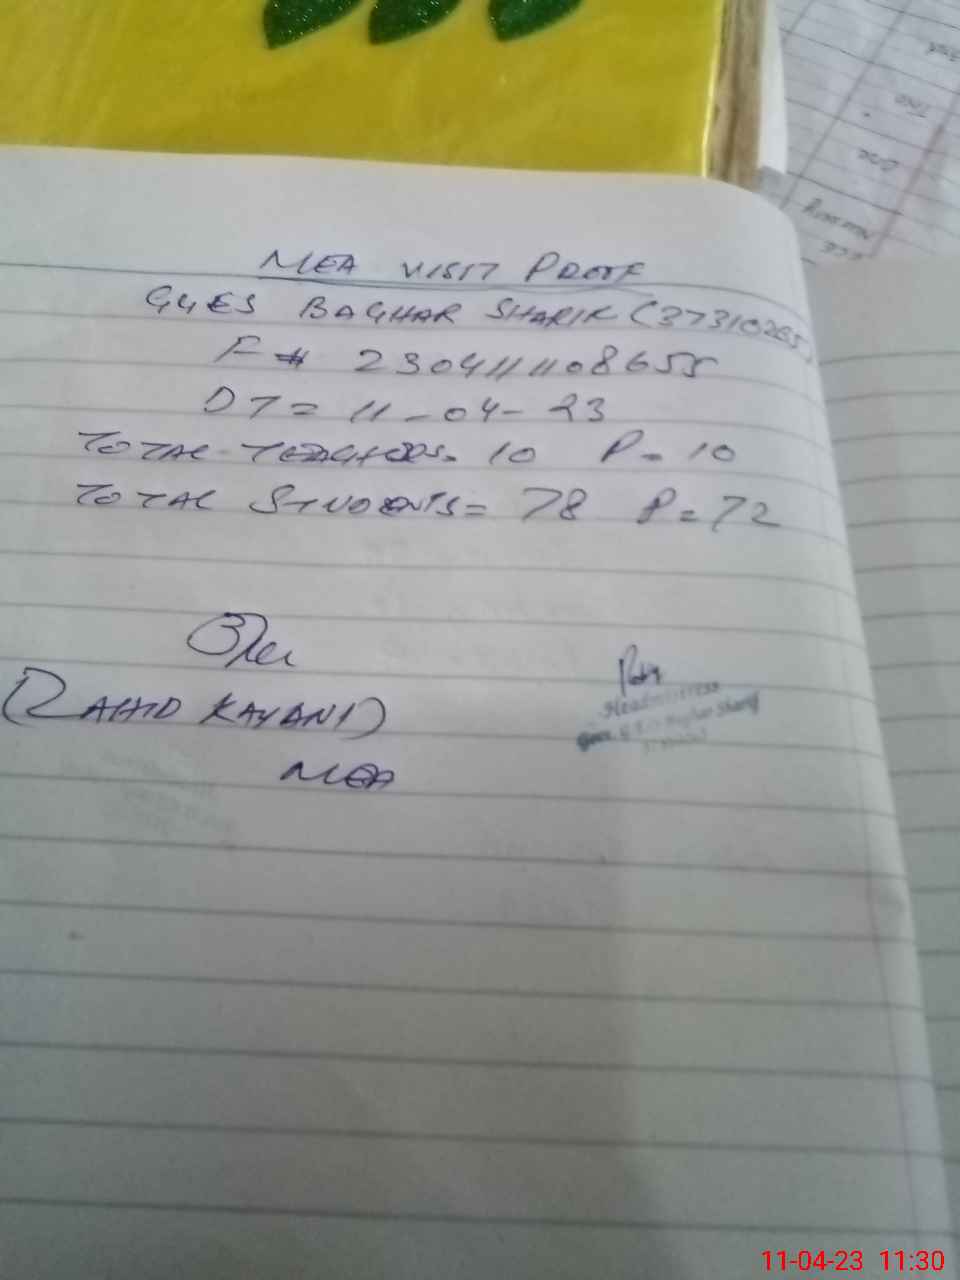 MEA VISIT PROOF
GGES BAGHAR SHARIF (37310265)
F# 230411108655
DT = 11-04-23
TOTAL TEACHERS = 10 P = 10
TOTAL STUDENTS = 78 P = 72
(ZAHID KAYANI)
MEA
Headmistress
Baghar Sharif
11-04-23 11:30